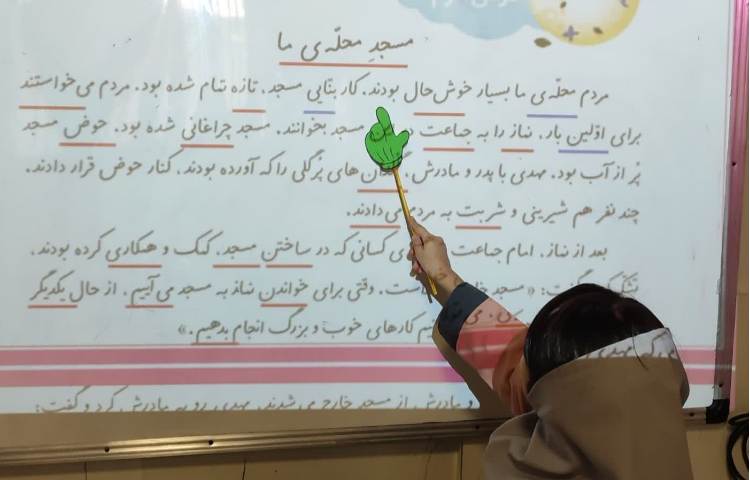 مسجدِ محلّه‌ی ما
مردم محلّه‌ی ما بسیار خوش‌حال بودند. کار بنّایی مسجد، تازه تمام شده بود. مردم می‌خواستند
برای اوّلین بار، نماز را به جماعت در مسجد بخوانند. مسجد چراغانی شده بود. حوض مسجد
پُر از آب بود. مهدی با پدر و مادرش، گلدان‌های پُرگلی را که آورده بودند، کنار حوض قرار دادند.
چند نفر هم شیرینی و شربت به مردم می‌دادند.
بعد از نماز، امام جماعت کسانی که در ساختن مسجد، کمک و همکاری کرده بودند،
گفت: «مسجد است. وقتی برای خواندن نماز به مسجد می‌آییم، از حال یکدیگر
کارهای خوب و بزرگ انجام بدهیم.»
و مادرش از مسجد خارج می‌شدند، مهدی رو به مادرش کرد و گفت: